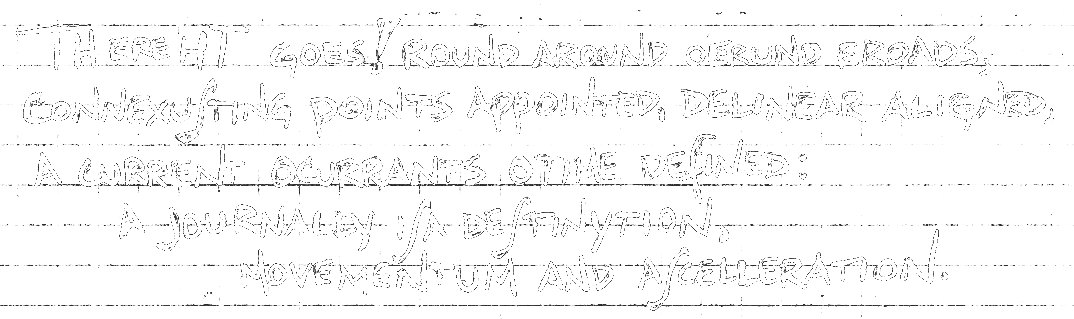 THERE HT GOES! ROUND AROUND OERUND BROADS,
CONNEXUſTING POINTS APPOINTED, DELINEAR-ALIGNED,
A CURRENT OCURRANTS OFTIME DEFINED:
A JOURNALEY iſA DEſTINYTION,
MOVEMENTUM AND AſCELLERATION.